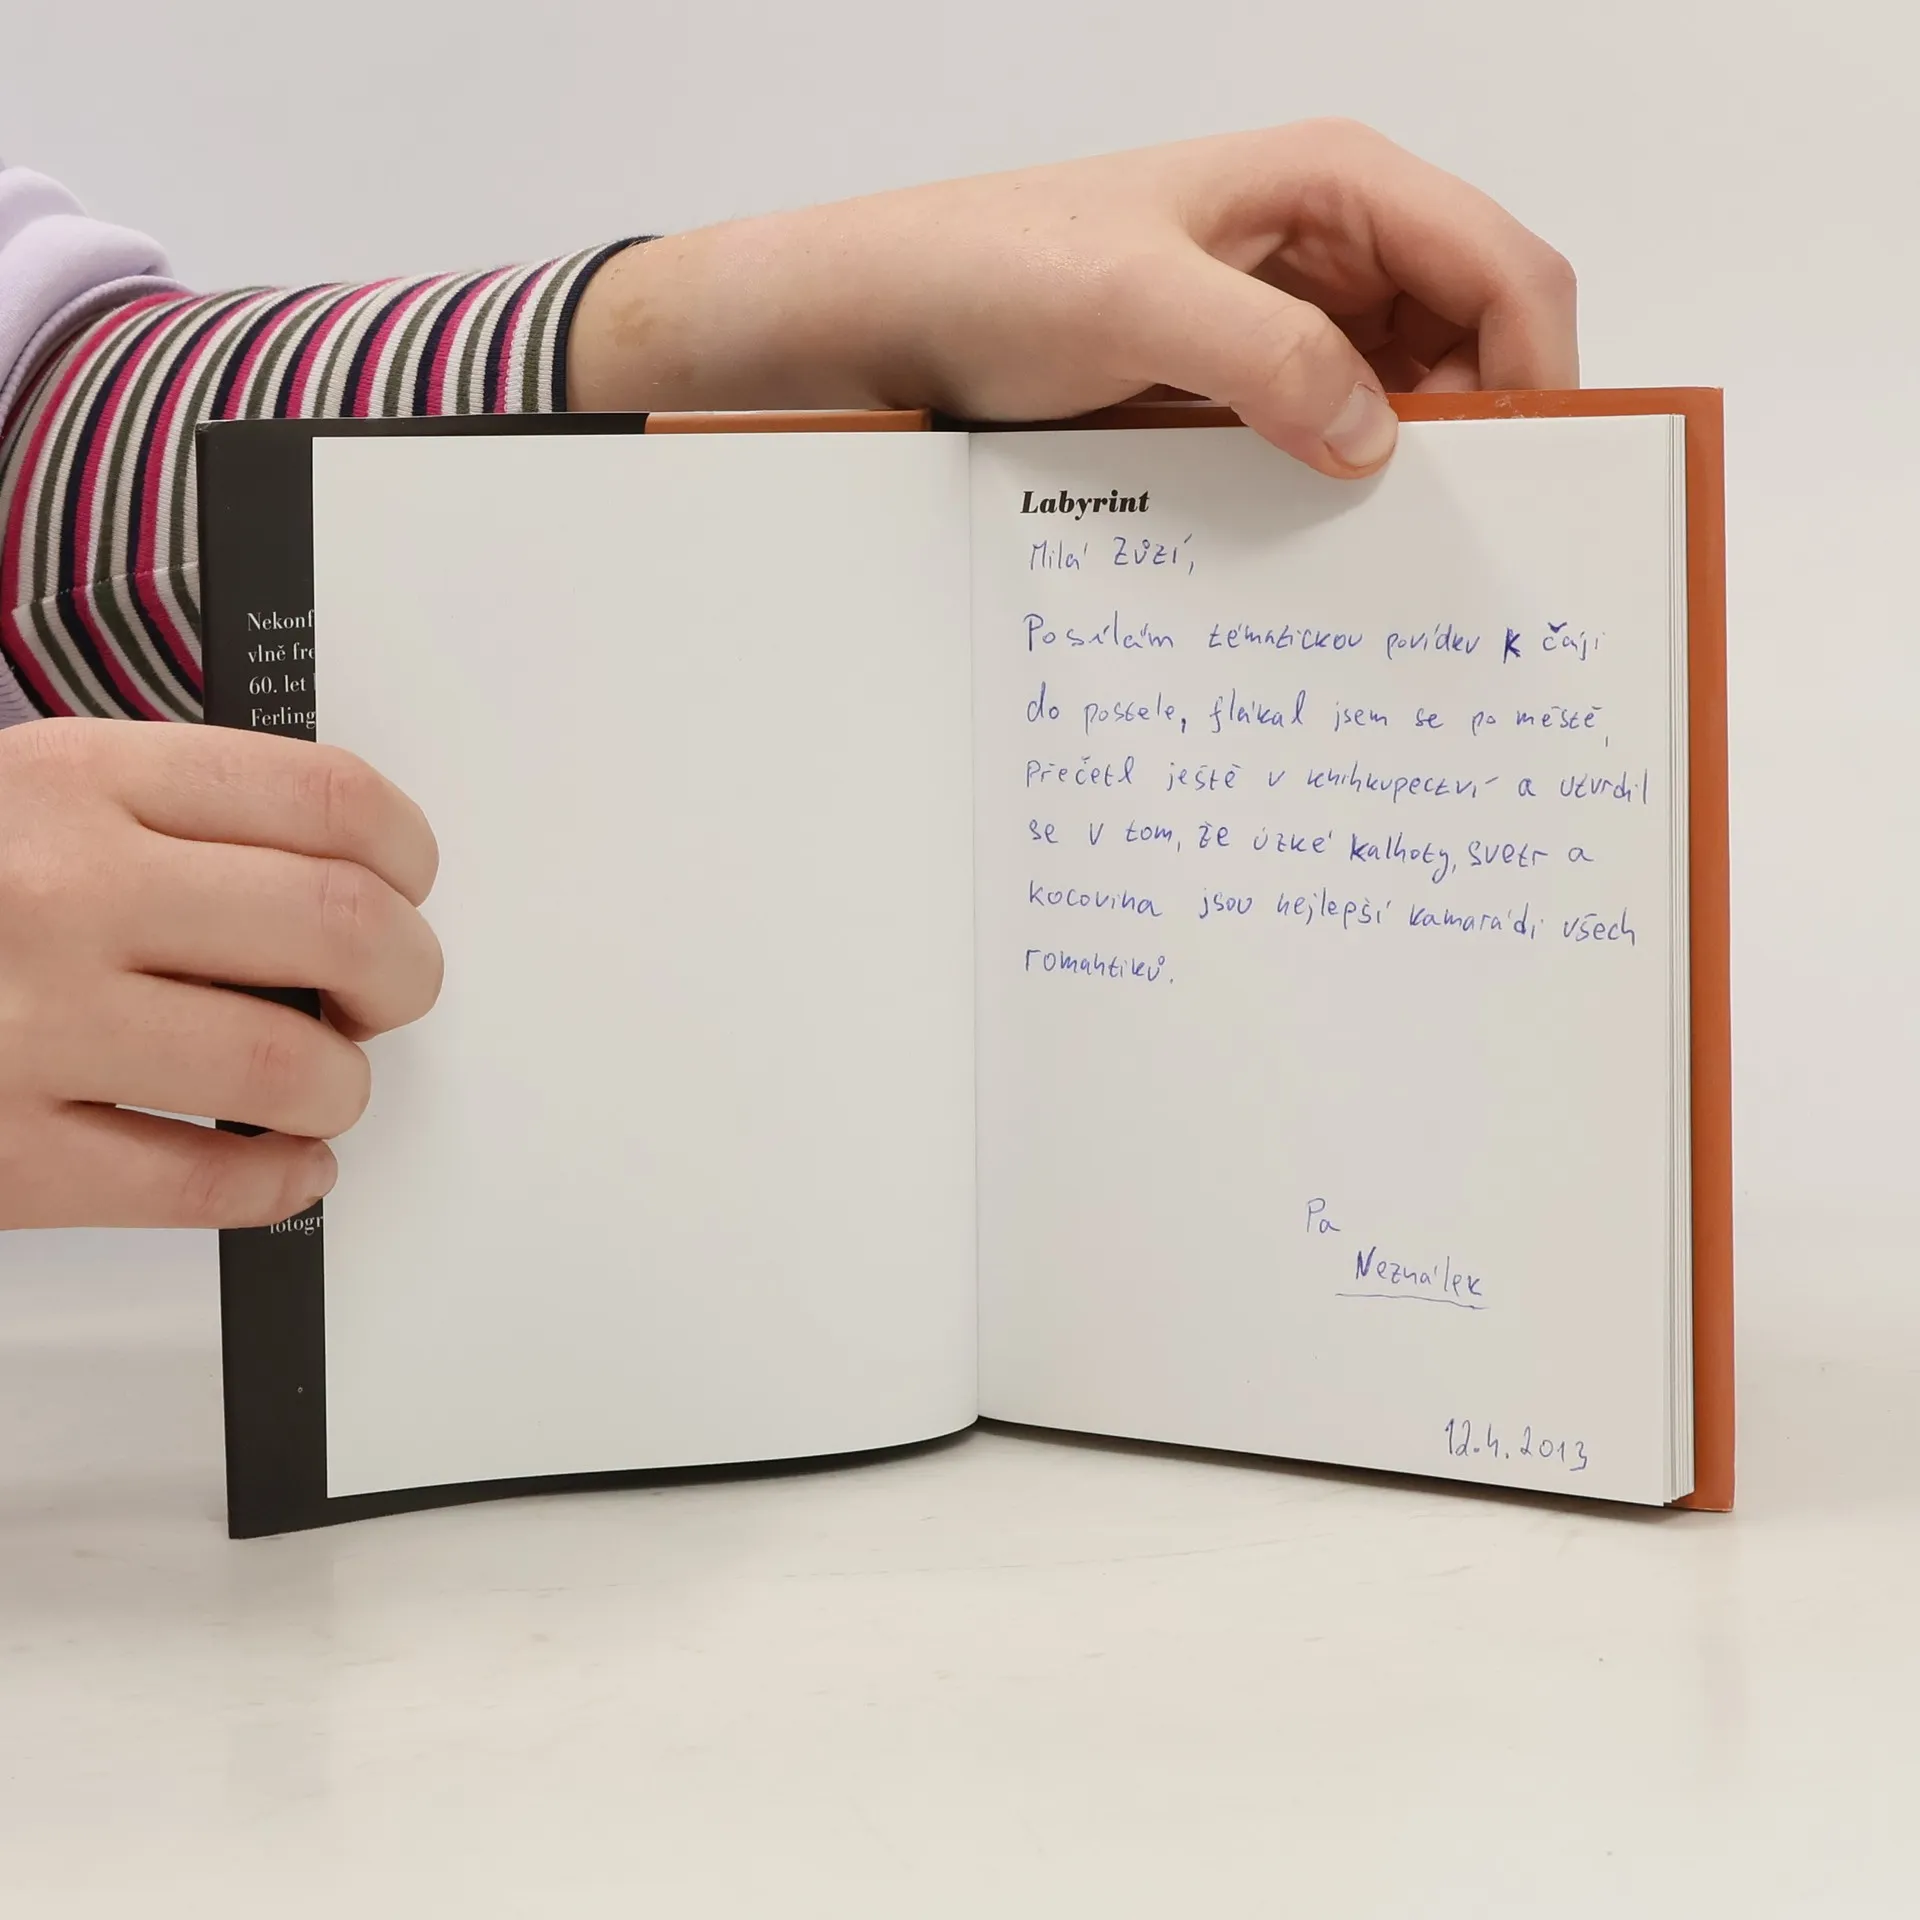 Nekonf
vlně fre
60. let
Ferling
fotogr
Labyrint
Milá ZůZÍ,
Posílám tématickou povídku k čaji
do postele, flákal jsem se po městě,
přečetl ještě v knihkupectví a utvrdil
se v tom, že úzké kalhoty, svetr a
kocovina jsou nejlepší kamarádi všech
romantiků.
Pa
Neználek
12.4.2013